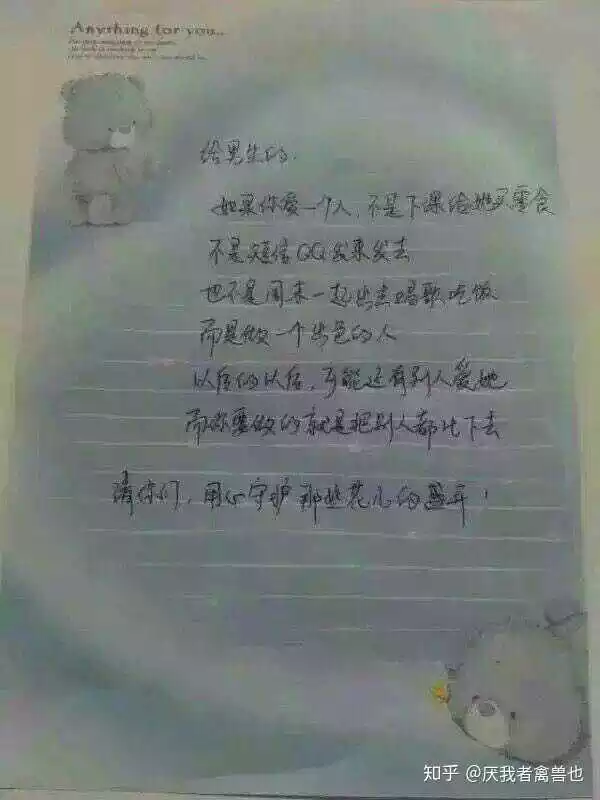 Anything for you..
给男生的.
如果你爱一个人,不是下课给她买零食
不是短信QQ发来发去
也不是周末一起出去唱歌吃饭
而是做一个出色的人
以后的以后,可能还有别人爱她
而你要做的就是把别人都比下去
请你们,用心守护那些花儿的盛开!
知乎 @厌我者禽兽也